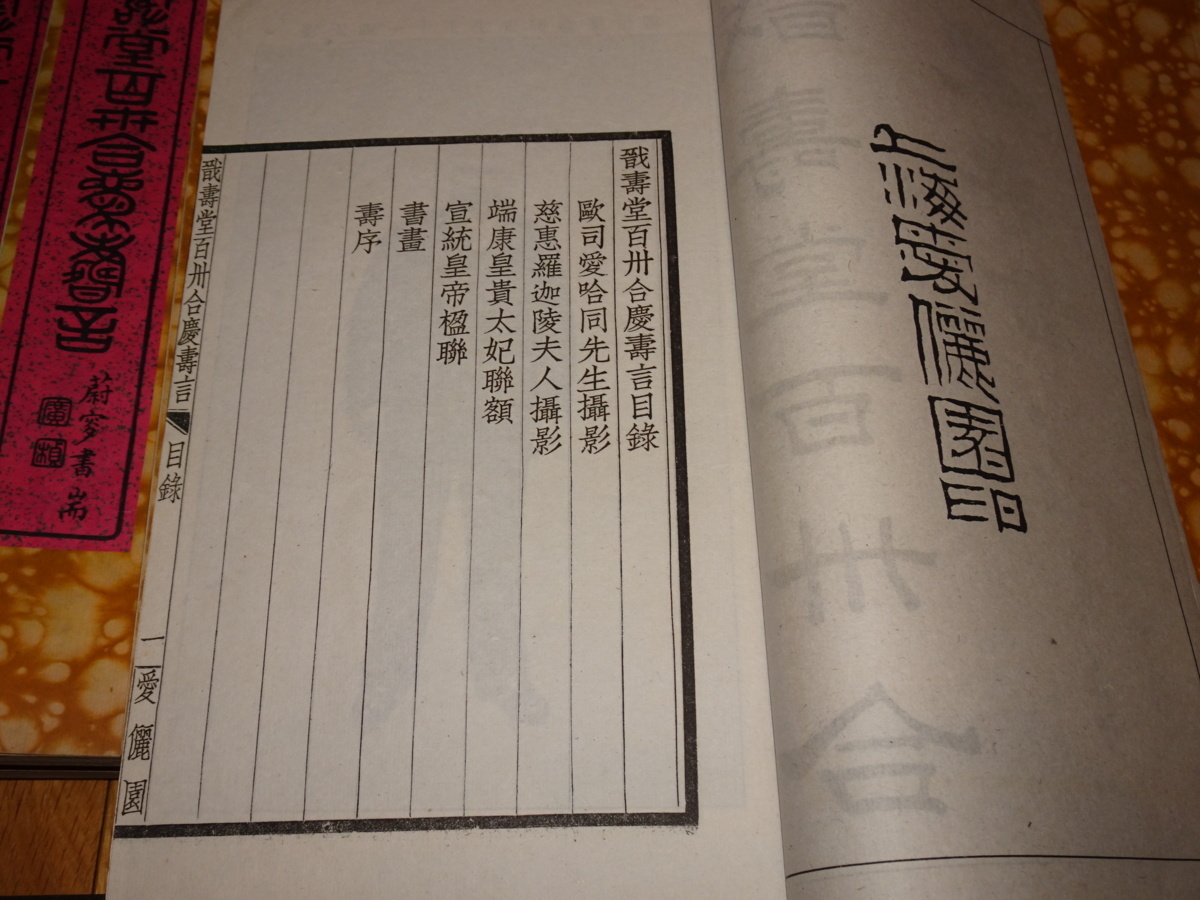 上海愛儷園印
戩壽堂百卅合慶壽言目錄
歐司愛哈同先生攝影
慈惠羅迦陵夫人攝影
端康皇貴太妃聯額
宣統皇帝楹聯
書畫
壽序
戩壽堂百卅合慶壽言
目錄
一
愛儷園
壽堂百卅合
堂百卅合慶壽言
書耑